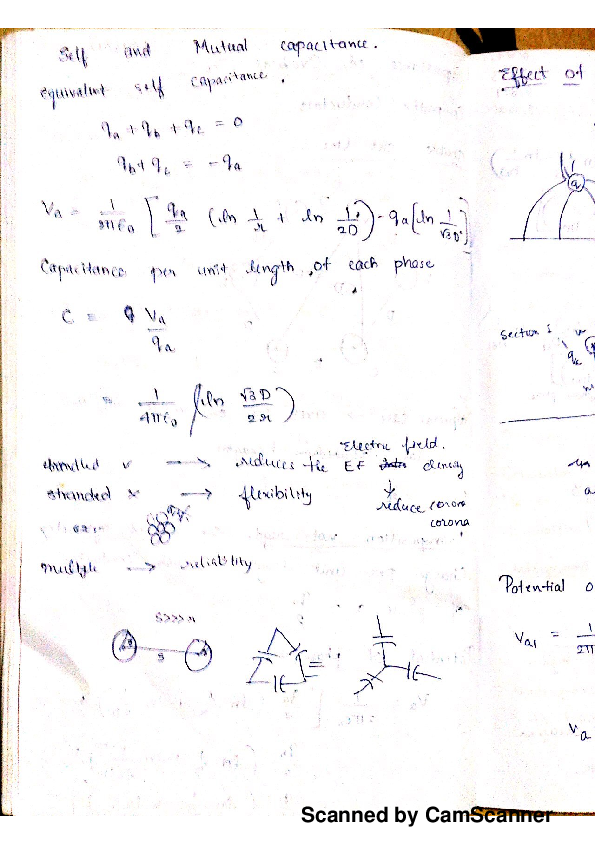 Self and Mutual capacitance.
equivalent self capacitance.
qa + qb + qc = 0
qb + qc = -qa
Va = 1/2πϵ0 [ qa/2 (ln 1/r + ln 1/2D) - qa (ln 1/√3D) ]
Capacitance per unit length of each phase
C = Va/qa
= 1/4πϵ0 (ln √3D/2r)
Electric field.
→ reduces the EF density
stranded → flexibility
reduce
corona
multiple → reliability
S>>>r
S
=
Effect of
a
section I
qc
a
Potential
Va1 = 1/2π
Va
Scanned by CamScanner